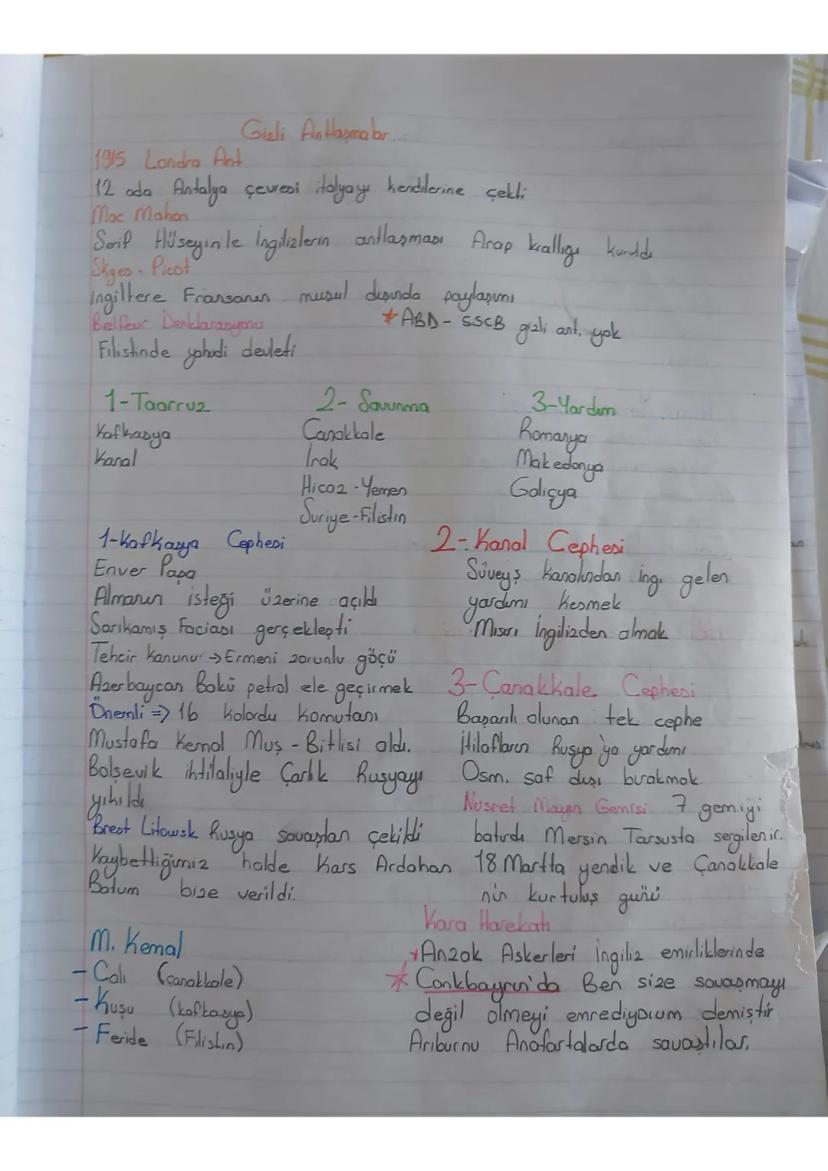 Gizli Antlaşmalar
1915 Londra Ant
12 ada Antalya çevresi italyayı kendilerine çekti
Mac Mahon
Şerif Hüseyinle İngilizlerin antlaşması Arap krallığı kuruldu
Skyes-Picot
ingiltere Fransanın musul dışında paylaşımı
Belfour Deklarasyonu
*ABD-SSCB gizli ant. yok
Filistinde yahudi devleti
1-Taarruz
Kafkasya
Kanal
2- Savunma
Çanakkale
Irak
Hicaz-Yemen
Suriye-Filistin
3-Yardım
Romanya
Makedonya
Galiçya
1-Kafkasya Cephesi
Enver Paşa
Almanın isteği üzerine açıldı
Sarıkamış Faciası gerçekleşti
Tehcir kanunu →Ermeni zorunlu göçü
Azerbaycan Bakü petrol ele geçirmek
Önemli => 16 kolordu komutanı
Mustafa Kemal Muş-Bitlisi aldı.
Bolşevik ihtilaliyle Çarlık Rusyayı
yıkıldı
Brest Litowsk Rusya savaştan çekildi
Kaybettiğimiz halde Kars Ardahan
Batum bize verildi.
M. Kemal
- Calı (Çanakkale)
- Kuşu (kafkasya)
- Feride (Filistin)
2-Kanal Cephesi
Süveyş kanalından ing. gelen
yardımı kesmek
Mısırı İngilizden almak
3-Çanakkale Cephesi
Başarılı olunan tek cephe
itilafların Rusya'ya yardımı
Osm. saf dışı bırakmak
Nusret Mayın Gemisi 7 gemiyi
batırdı Mersin Tarsusta sergilenir.
18 Martta yendik ve Çanakkale
nin kurtuluş günü
Kara Harekatı
*Anzak Askerleri ingiliz emirliklerinde
*Conkbayırı'da Ben size savaşmayı
değil ölmeyi emrediyorum demiştir
Arıburnu Anafartalarda savaştılar.